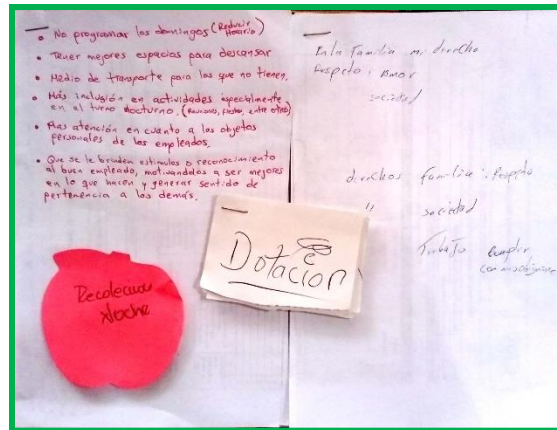 • No programar los domingos (Reducir Horario)
• Tener mejores espacios para descansar
• Medio de transporte para los que no tienen.
• Más inclusión en actividades especialmente
en el turno nocturno. (Reuniones, fiestas, entre otros)
• Mas atención en cuanto a los objetos
personales de los empleados.
• Que se le brinden estimulos o reconocimiento
al buen empleado, motivandolos a ser mejores
en lo que hacen y generar sentido de
pertenencia a los demás.
Noche
Dotación
En la Familia mi derecho
Respeto y Amor
sociedad
derechos familia : Respeto
" sociedad
Trabajo cumplir
con